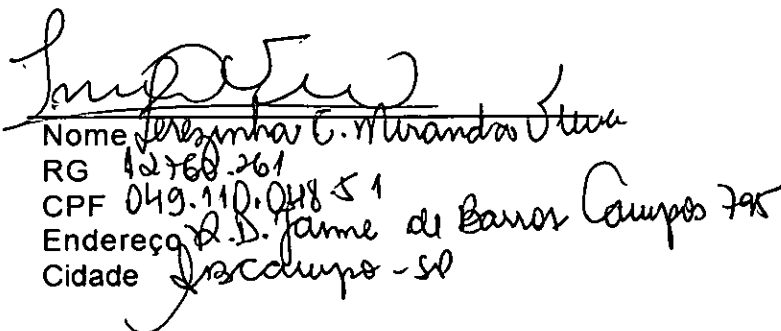 Nome Terezinha C. Miranda Vieira
RG 12760.261
CPF 049.110.048 51
Endereço R. D. Jaime de Barros Campos 795
Cidade SBCampo - SP